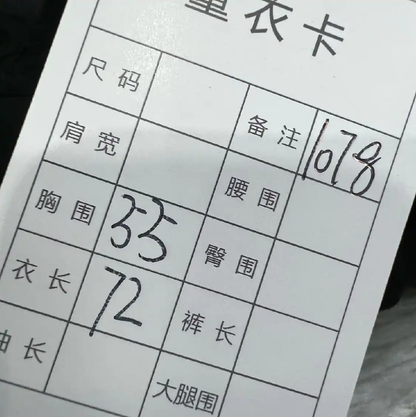 量衣卡
尺码 备注 1678
肩宽 腰围
胸围 55 臀围
衣长 72 裤长
袖长 大腿围